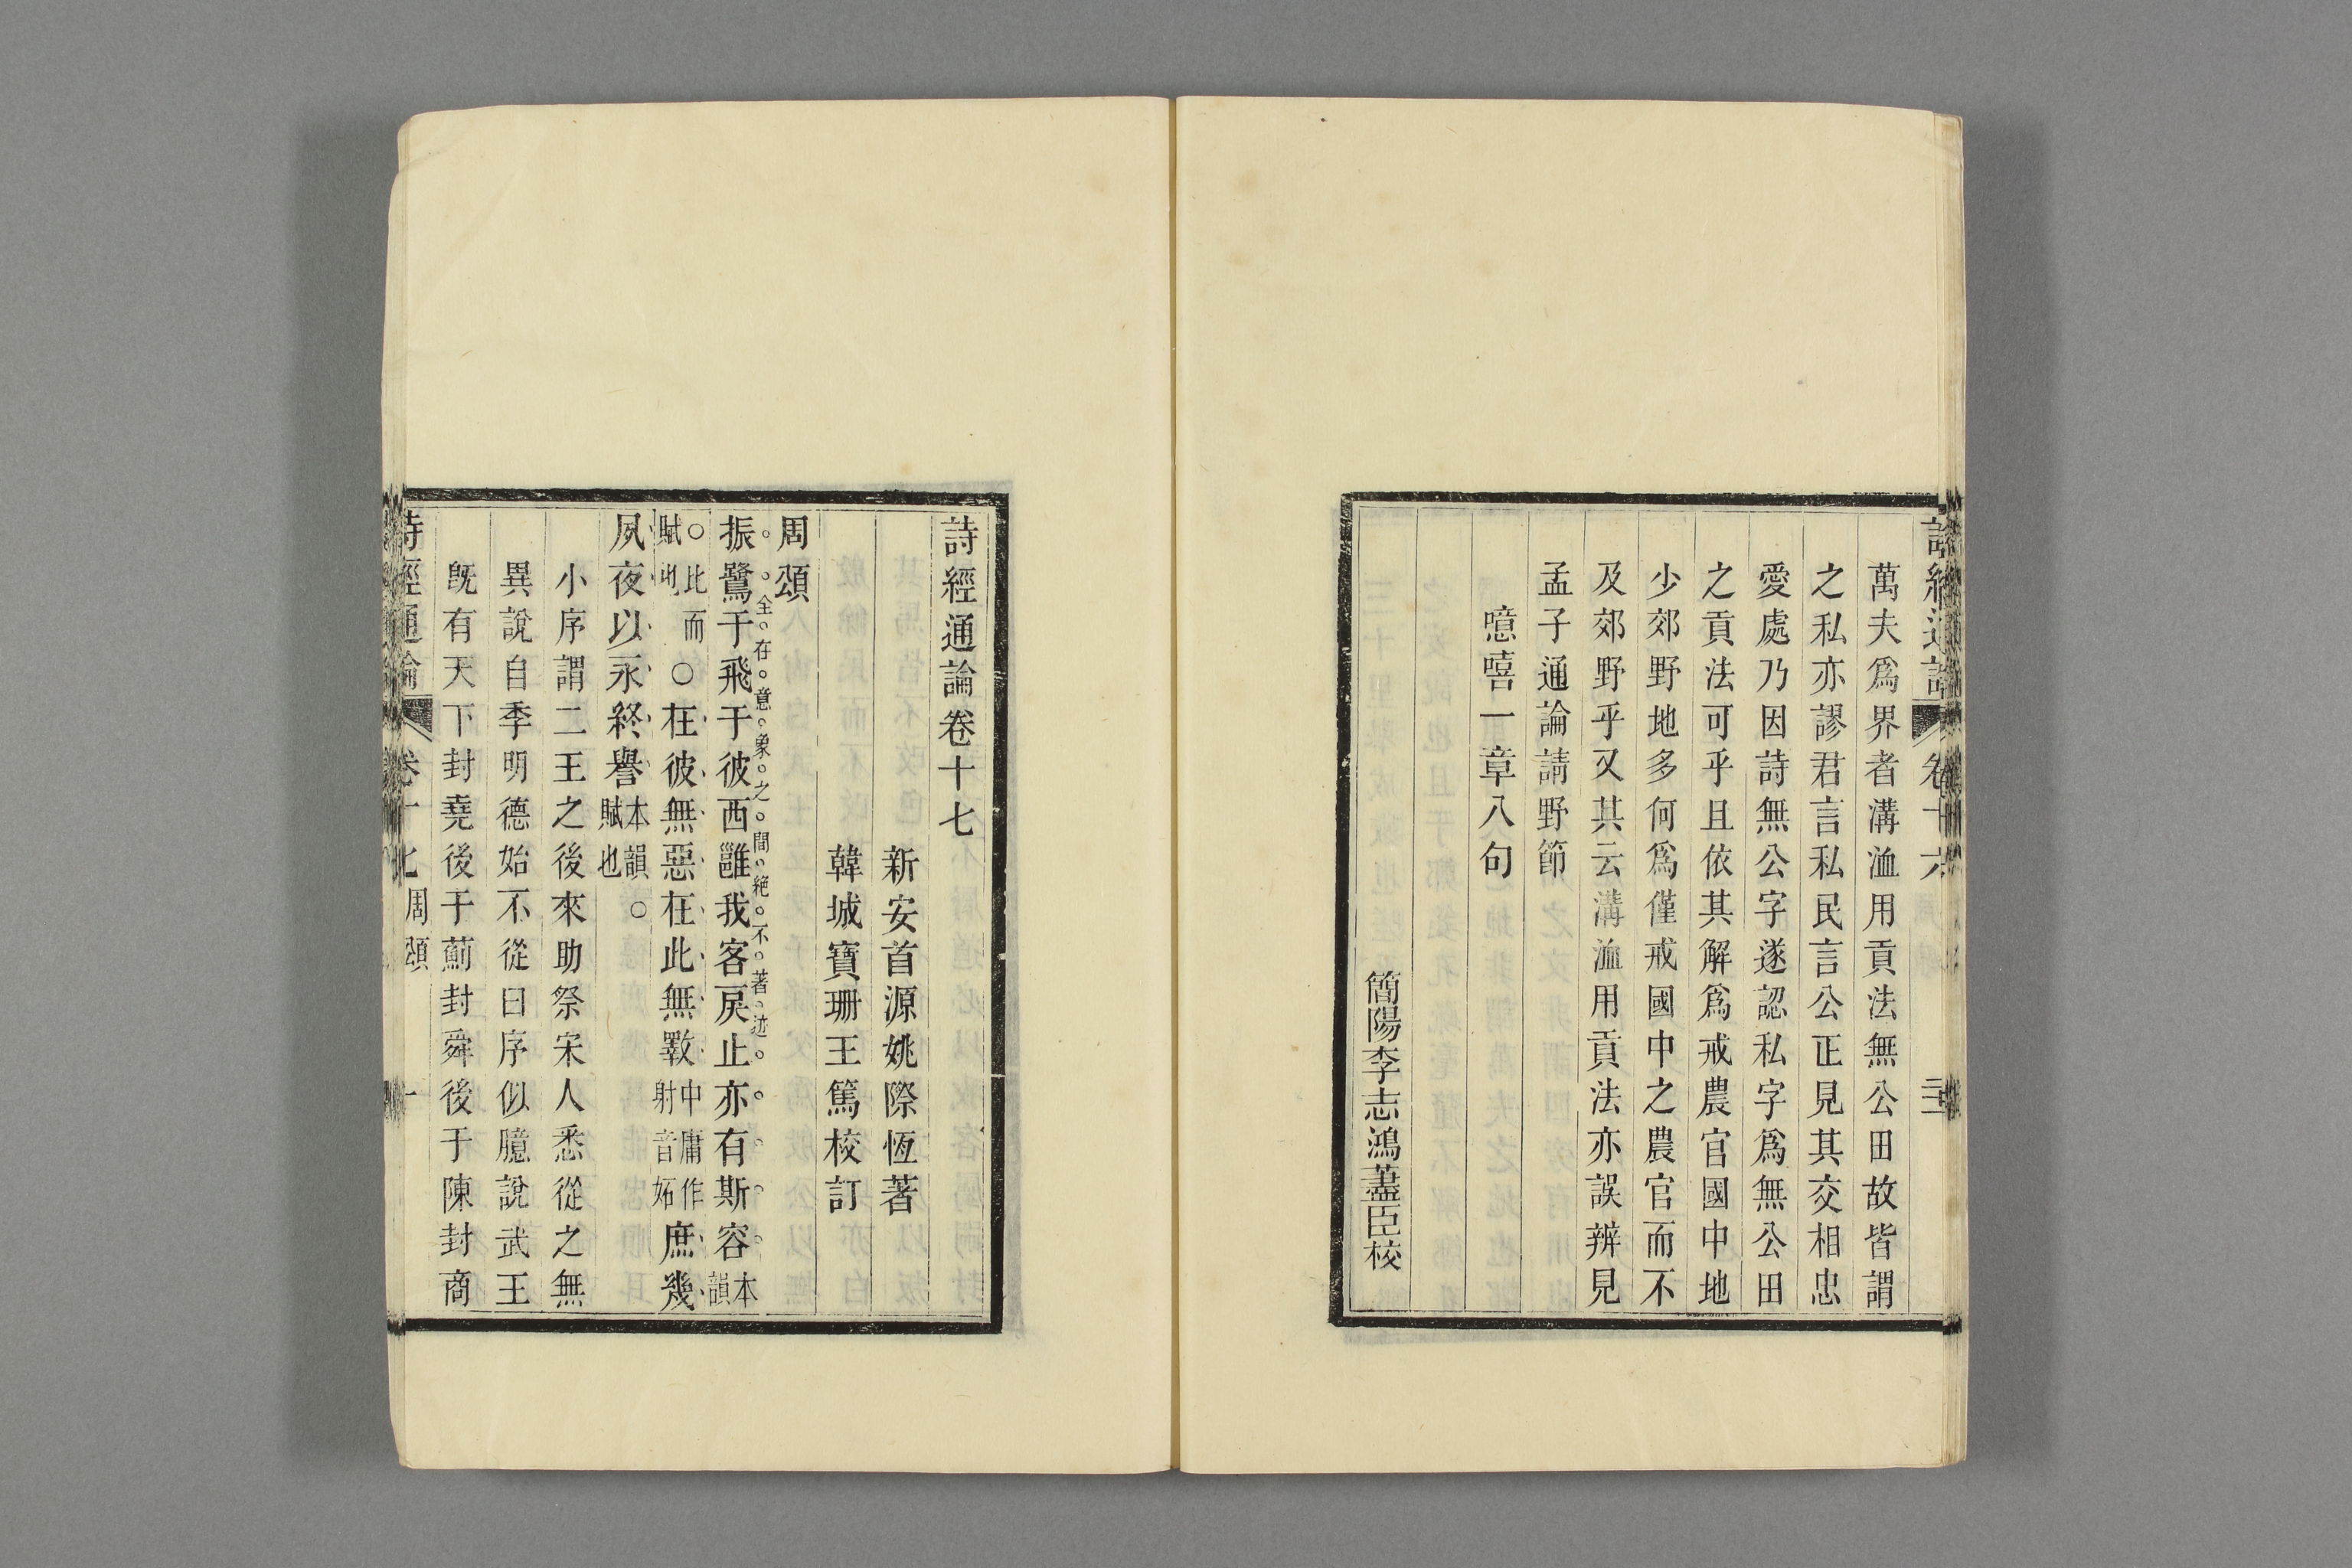 萬夫爲界者溝洫用貢法無公田故皆謂
之私亦謬君言私民言公正見其交相忠
愛處乃因詩無公字遂認私字爲無公田
之貢法可乎且依其解爲戒農官國中地
少郊野地多何爲僅戒國中之農官而不
及郊野乎又其云溝洫用貢法亦誤辨見
孟子通論請野節
噫嘻一章八句
簡陽李志鴻藎臣校
詩經通論卷十七
新安首源姚際恆著
韓城寶珊王篤校訂
周頌
全在意象之間絕不著迹
振鷺于飛于彼西雝我客戾止亦有斯容本韻
○比而賦也○在彼無惡在此無斁中庸作射音妬庶幾
夙夜以永終譽本韻○賦也
小序謂二王之後來助祭宋人悉從之無
異說自季明德始不從曰序似臆說武王
旣有天下封堯後于薊封舜後于陳封商
詩經通論 卷十七 周頌 一